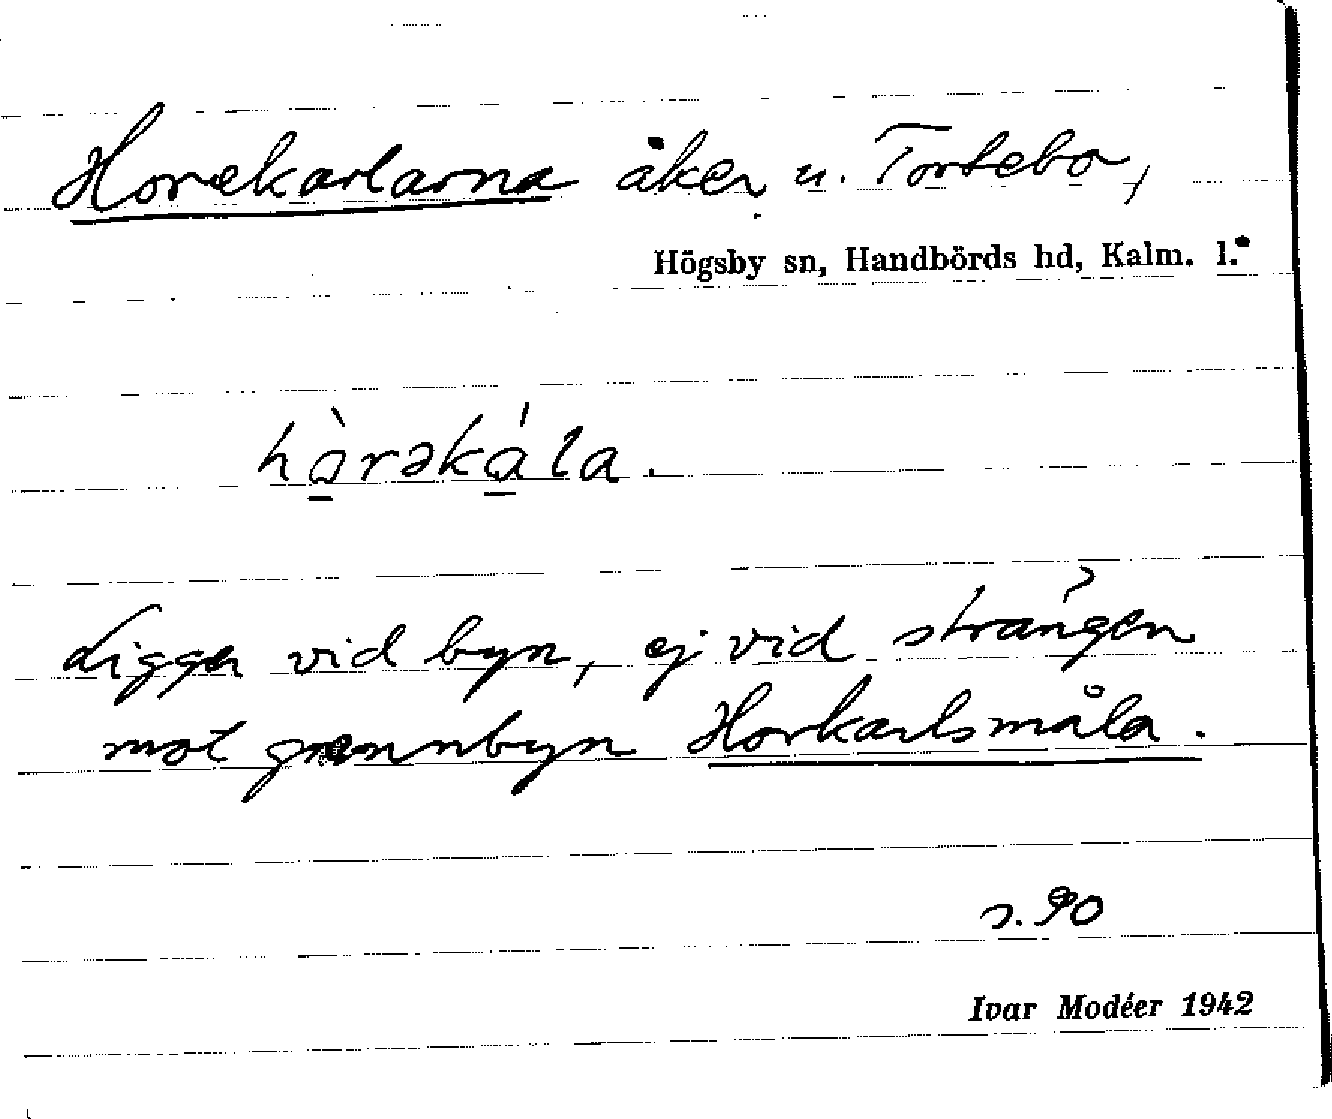 Horekarlarna åker u. Tortebo,
Högsby sn, Handbörds hd, Kalm. l.
hò̱rəká̱la.
Ligger vid byn, ej vid strängen
mot grannbyn Horkarlsmåla.
s. 90
Ivar Modéer 1942